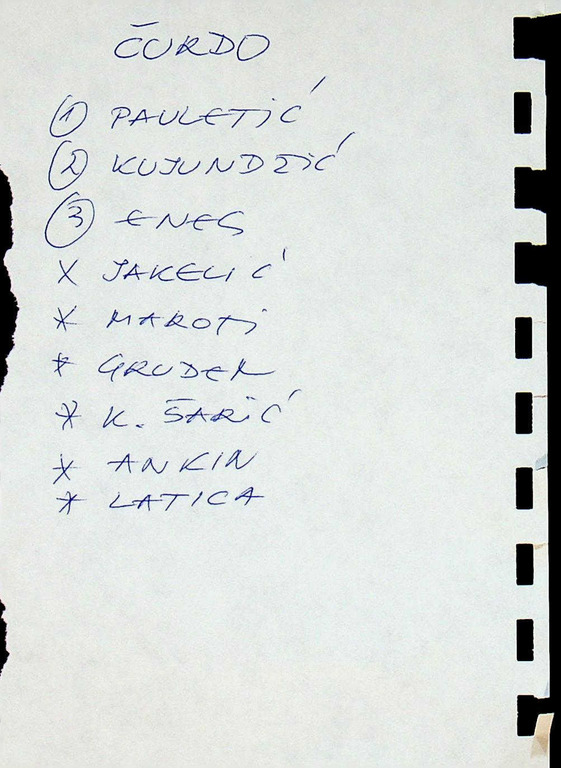 ČURDO
1 PAULETIĆ
2 KUJUNDZIĆ
3 ENES
X JAKELIĆ
* MAROTI
* GRUDEN
* K. ŠARIĆ
* ANKIN
* LATICA